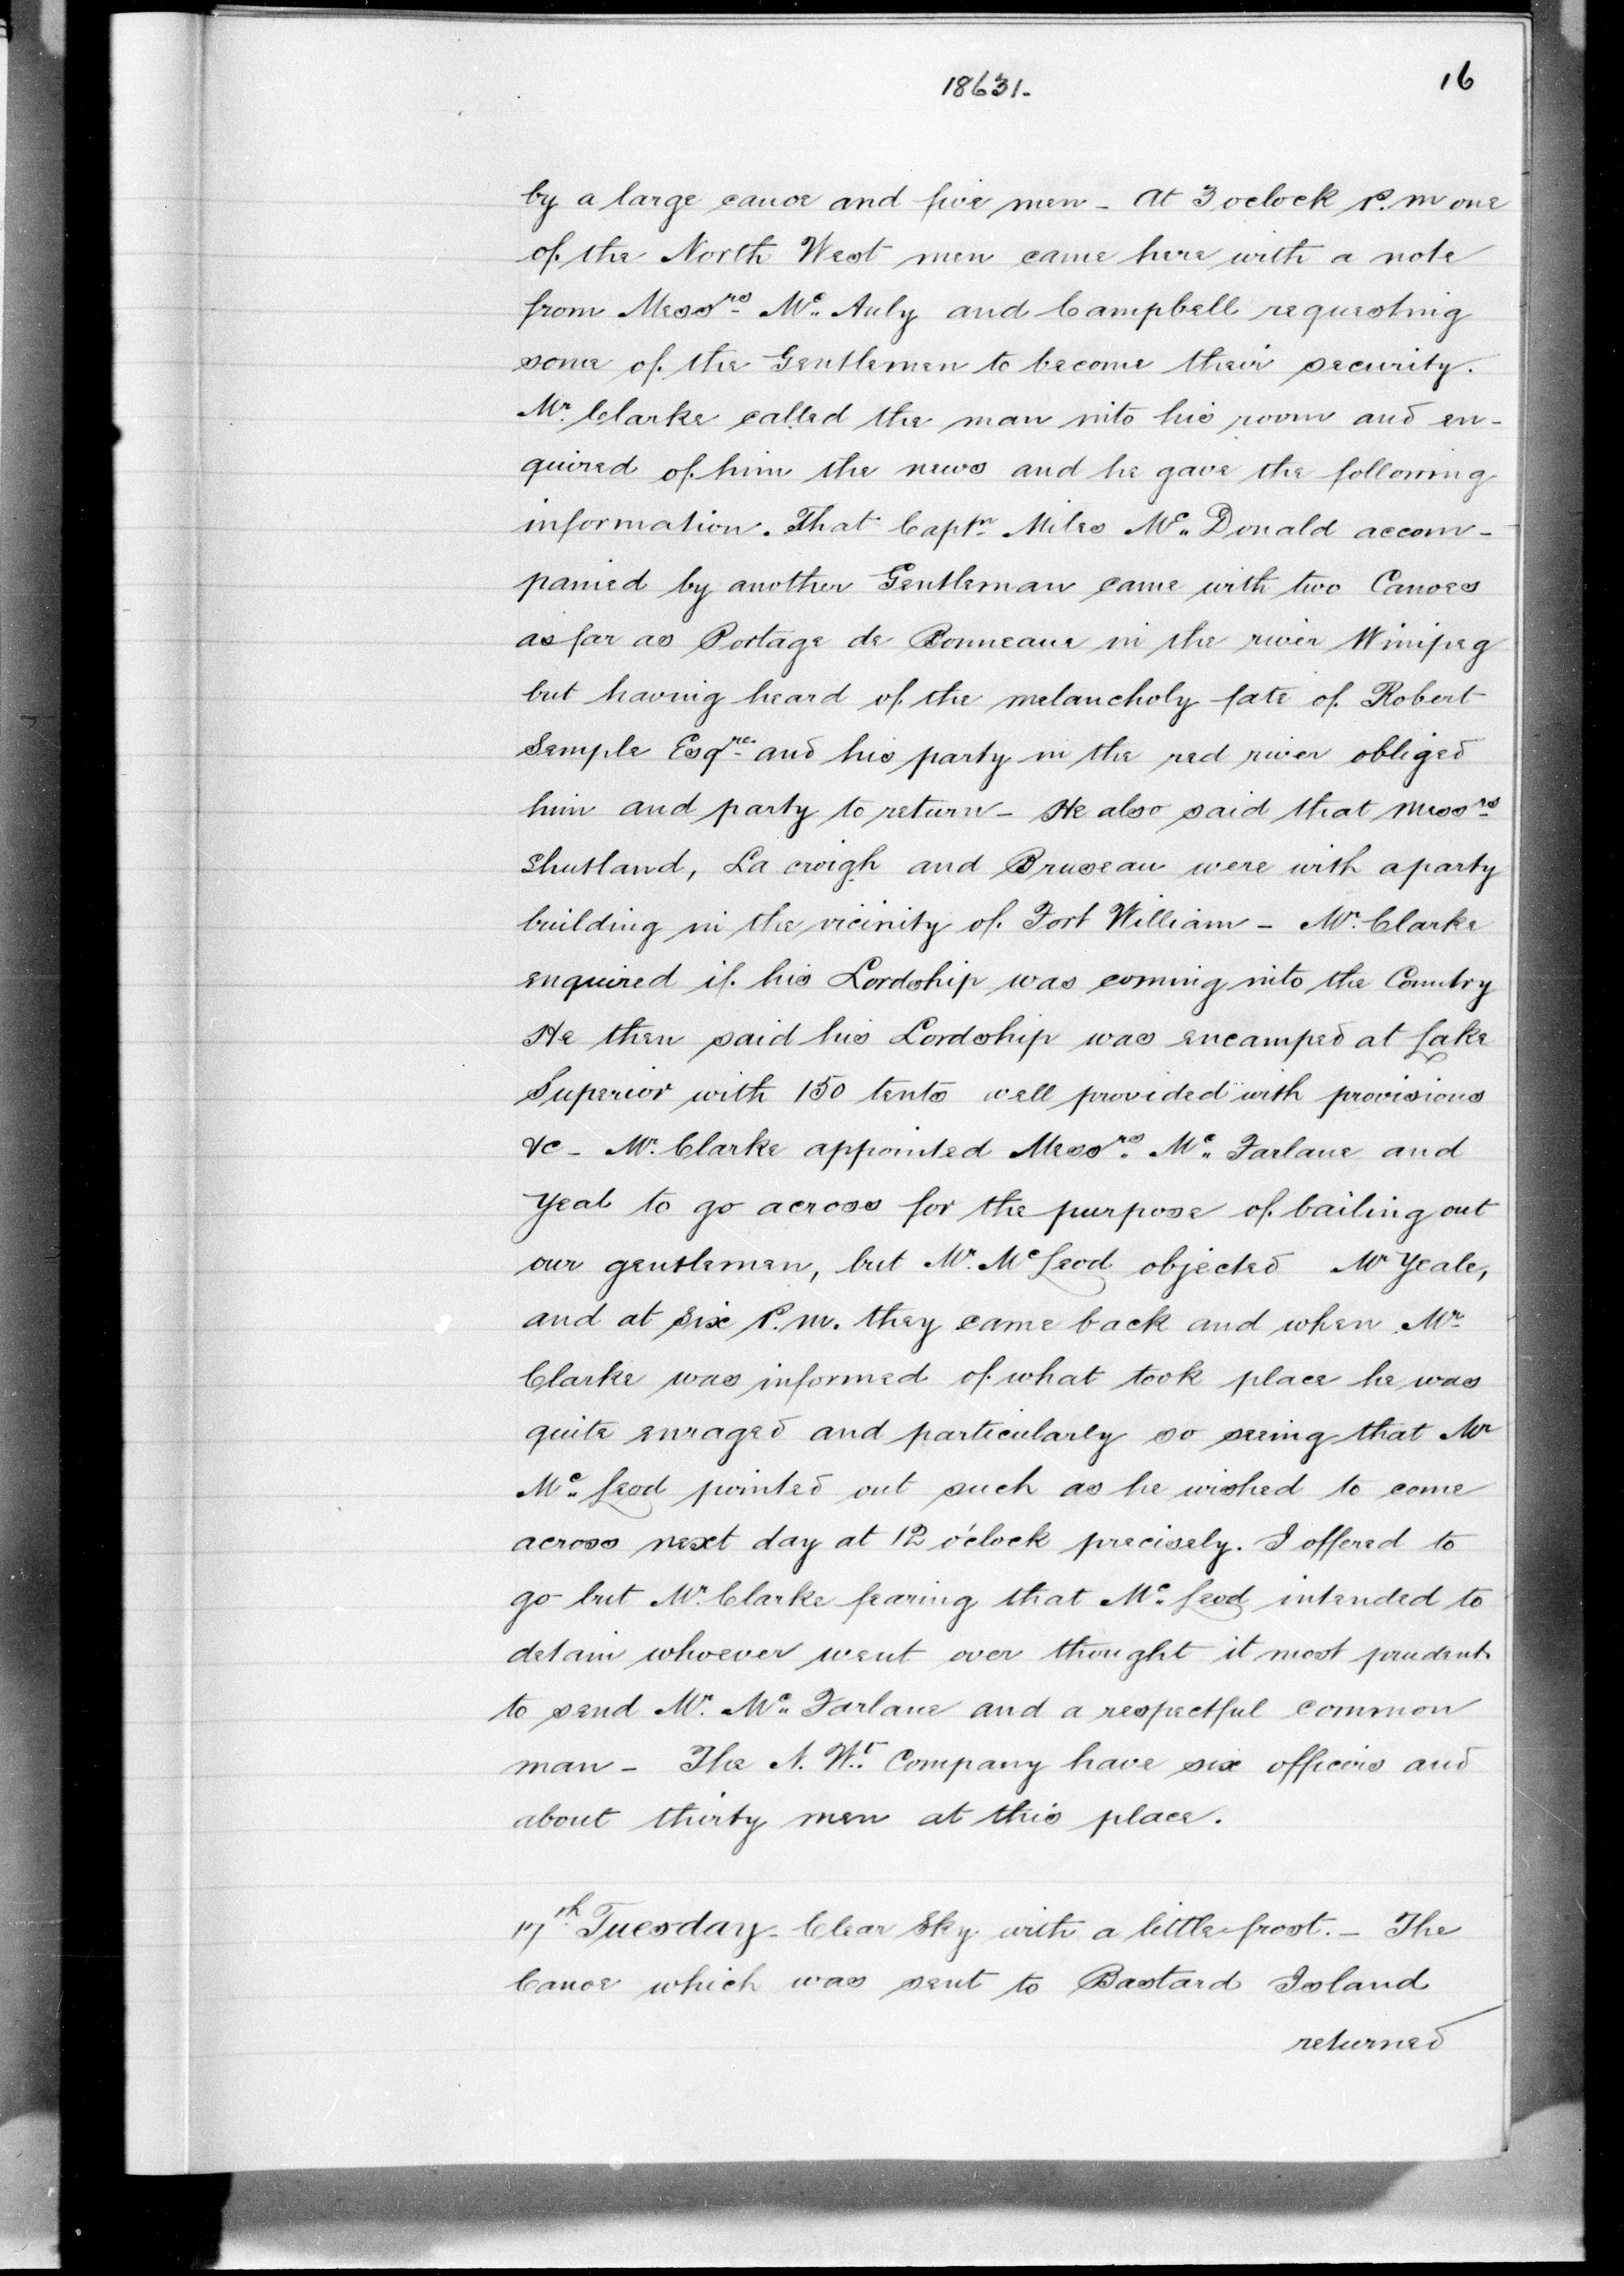 18631-
16
by a large canoe and five men - At 3 oclock P.m one
of the North West men came here with a note
from Messrs Mc Auly and Campbell requesting
some of the Gentlemen to become their security.
Mr. Clarke called the man into his room and en-
quired of him the news and he gave the following
information. That Captn Miles Mc Donald accom-
panied by another Gentleman came with two Canoes
as far as Portage de Bonneaue in the river Winipeg
but having heard of the melancholy fate of Robert
Semple Esqre and his party in the red river obliged
him and party to return - He also said that Messrs
Shutland, La croigh and Bruseau were with a party
building in the vicinity of Fort William - Mr. Clarke
enquired if his Lordship was coming into the Country
He then said his Lordship was encamped at Lake
Superior with 150 tents well provided with provisions
&c - Mr. Clarke appointed Messrs Mc Farlane and
Yeal to go across for the purpose of bailing out
our gentlemen, but Mr. McLeod objected Mr Yeale,
and at six P.m. they came back and when Mr
Clarke was informed of what took place he was
quite enraged and particularly so seeing that Mr
Mc Leod pointed out such as he wished to come
across next day at 12 o'clock precisely. I offered to
go but Mr. Clarke fearing that Mc Leod intended to
detain whoever went over thought it most prudent
to send Mr. Mc Farlane and a respectful common
man - The N. Wt. Company have six officers and
about thirty men at this place.
17th Tuesday - Clear Sky with a little frost. - The
Canoe which was sent to Bastard Island
returned